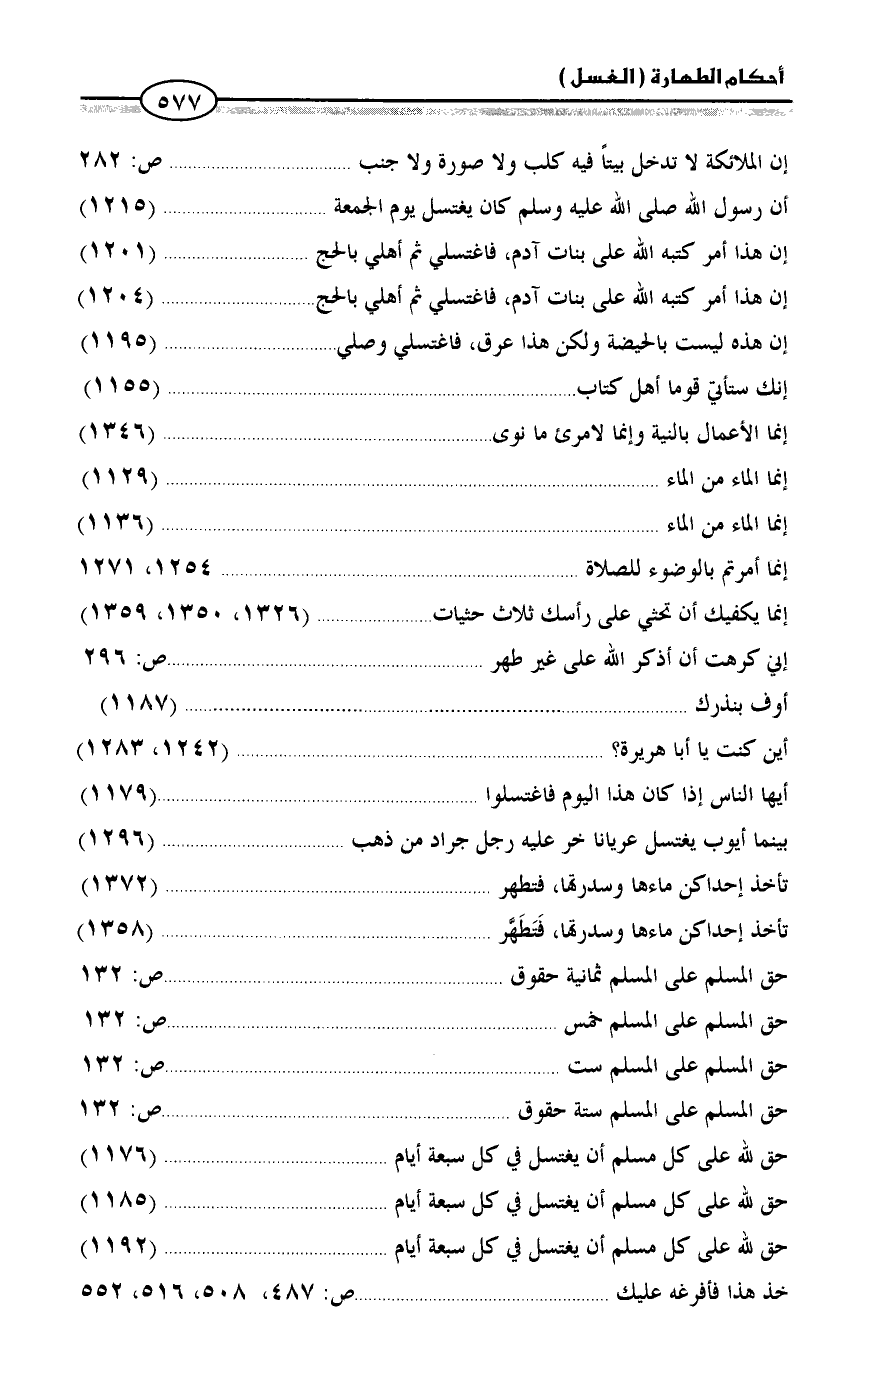 أحكام الطهارة (الغسل)
٥٧٧
إن الملائكة لا تدخل بيتاً فيه كلب ولا صورة ولا جنب ........ ص: ٢٨٢
أن رسول الله صلى الله عليه وسلم كان يغتسل يوم الجمعة ........ (١٢١٥)
إن هذا أمر كتبه الله على بنات آدم، فاغتسلي ثم أهلي بالحج ........ (١٢٠١)
إن هذا أمر كتبه الله على بنات آدم، فاغتسلي ثم أهلي بالحج ........ (١٢٠٤)
إن هذه ليست بالحيضة ولكن هذا عرق، فاغتسلي وصلي ........ (١١٩٥)
إنك ستأتي قوما أهل كتاب ........ (١١٥٥)
إنما الأعمال بالنية وإنما لامرئ ما نوى ........ (١٣٤٦)
إنما الماء من الماء ........ (١١٢٩)
إنما الماء من الماء ........ (١١٣٦)
إنما أمرتم بالوضوء للصلاة ........ ١٢٥٤، ١٢٧١
إنما يكفيك أن تحثي على رأسك ثلاث حثيات ........ (١٣٢٦، ١٣٥٠، ١٣٥٩)
إني كرهت أن أذكر الله على غير طهر ........ ص: ٢٩٦
أوف بنذرك ........ (١١٨٧)
أين كنت يا أبا هريرة؟ ........ (١٢٤٢، ١٢٨٣)
أيها الناس إذا كان هذا اليوم فاغتسلوا ........ (١١٧٩)
بينما أيوب يغتسل عريانا خر عليه رجل جراد من ذهب ........ (١٢٩٦)
تأخذ إحداكن ماءها وسدرتها، فتطهر ........ (١٣٧٢)
تأخذ إحداكن ماءها وسدرتها، فَتَطَهَّر ........ (١٣٥٨)
حق المسلم على المسلم ثمانية حقوق ........ ص: ١٣٢
حق المسلم على المسلم خمس ........ ص: ١٣٢
حق المسلم على المسلم ست ........ ص: ١٣٢
حق المسلم على المسلم ستة حقوق ........ ص: ١٣٢
حق لله على كل مسلم أن يغتسل في كل سبعة أيام ........ (١١٧٦)
حق لله على كل مسلم أن يغتسل في كل سبعة أيام ........ (١١٨٥)
حق لله على كل مسلم أن يغتسل في كل سبعة أيام ........ (١١٩٢)
خذ هذا فأفرغه عليك ........ ص: ٤٨٧، ٥٠٨، ٥١٦، ٥٥٢